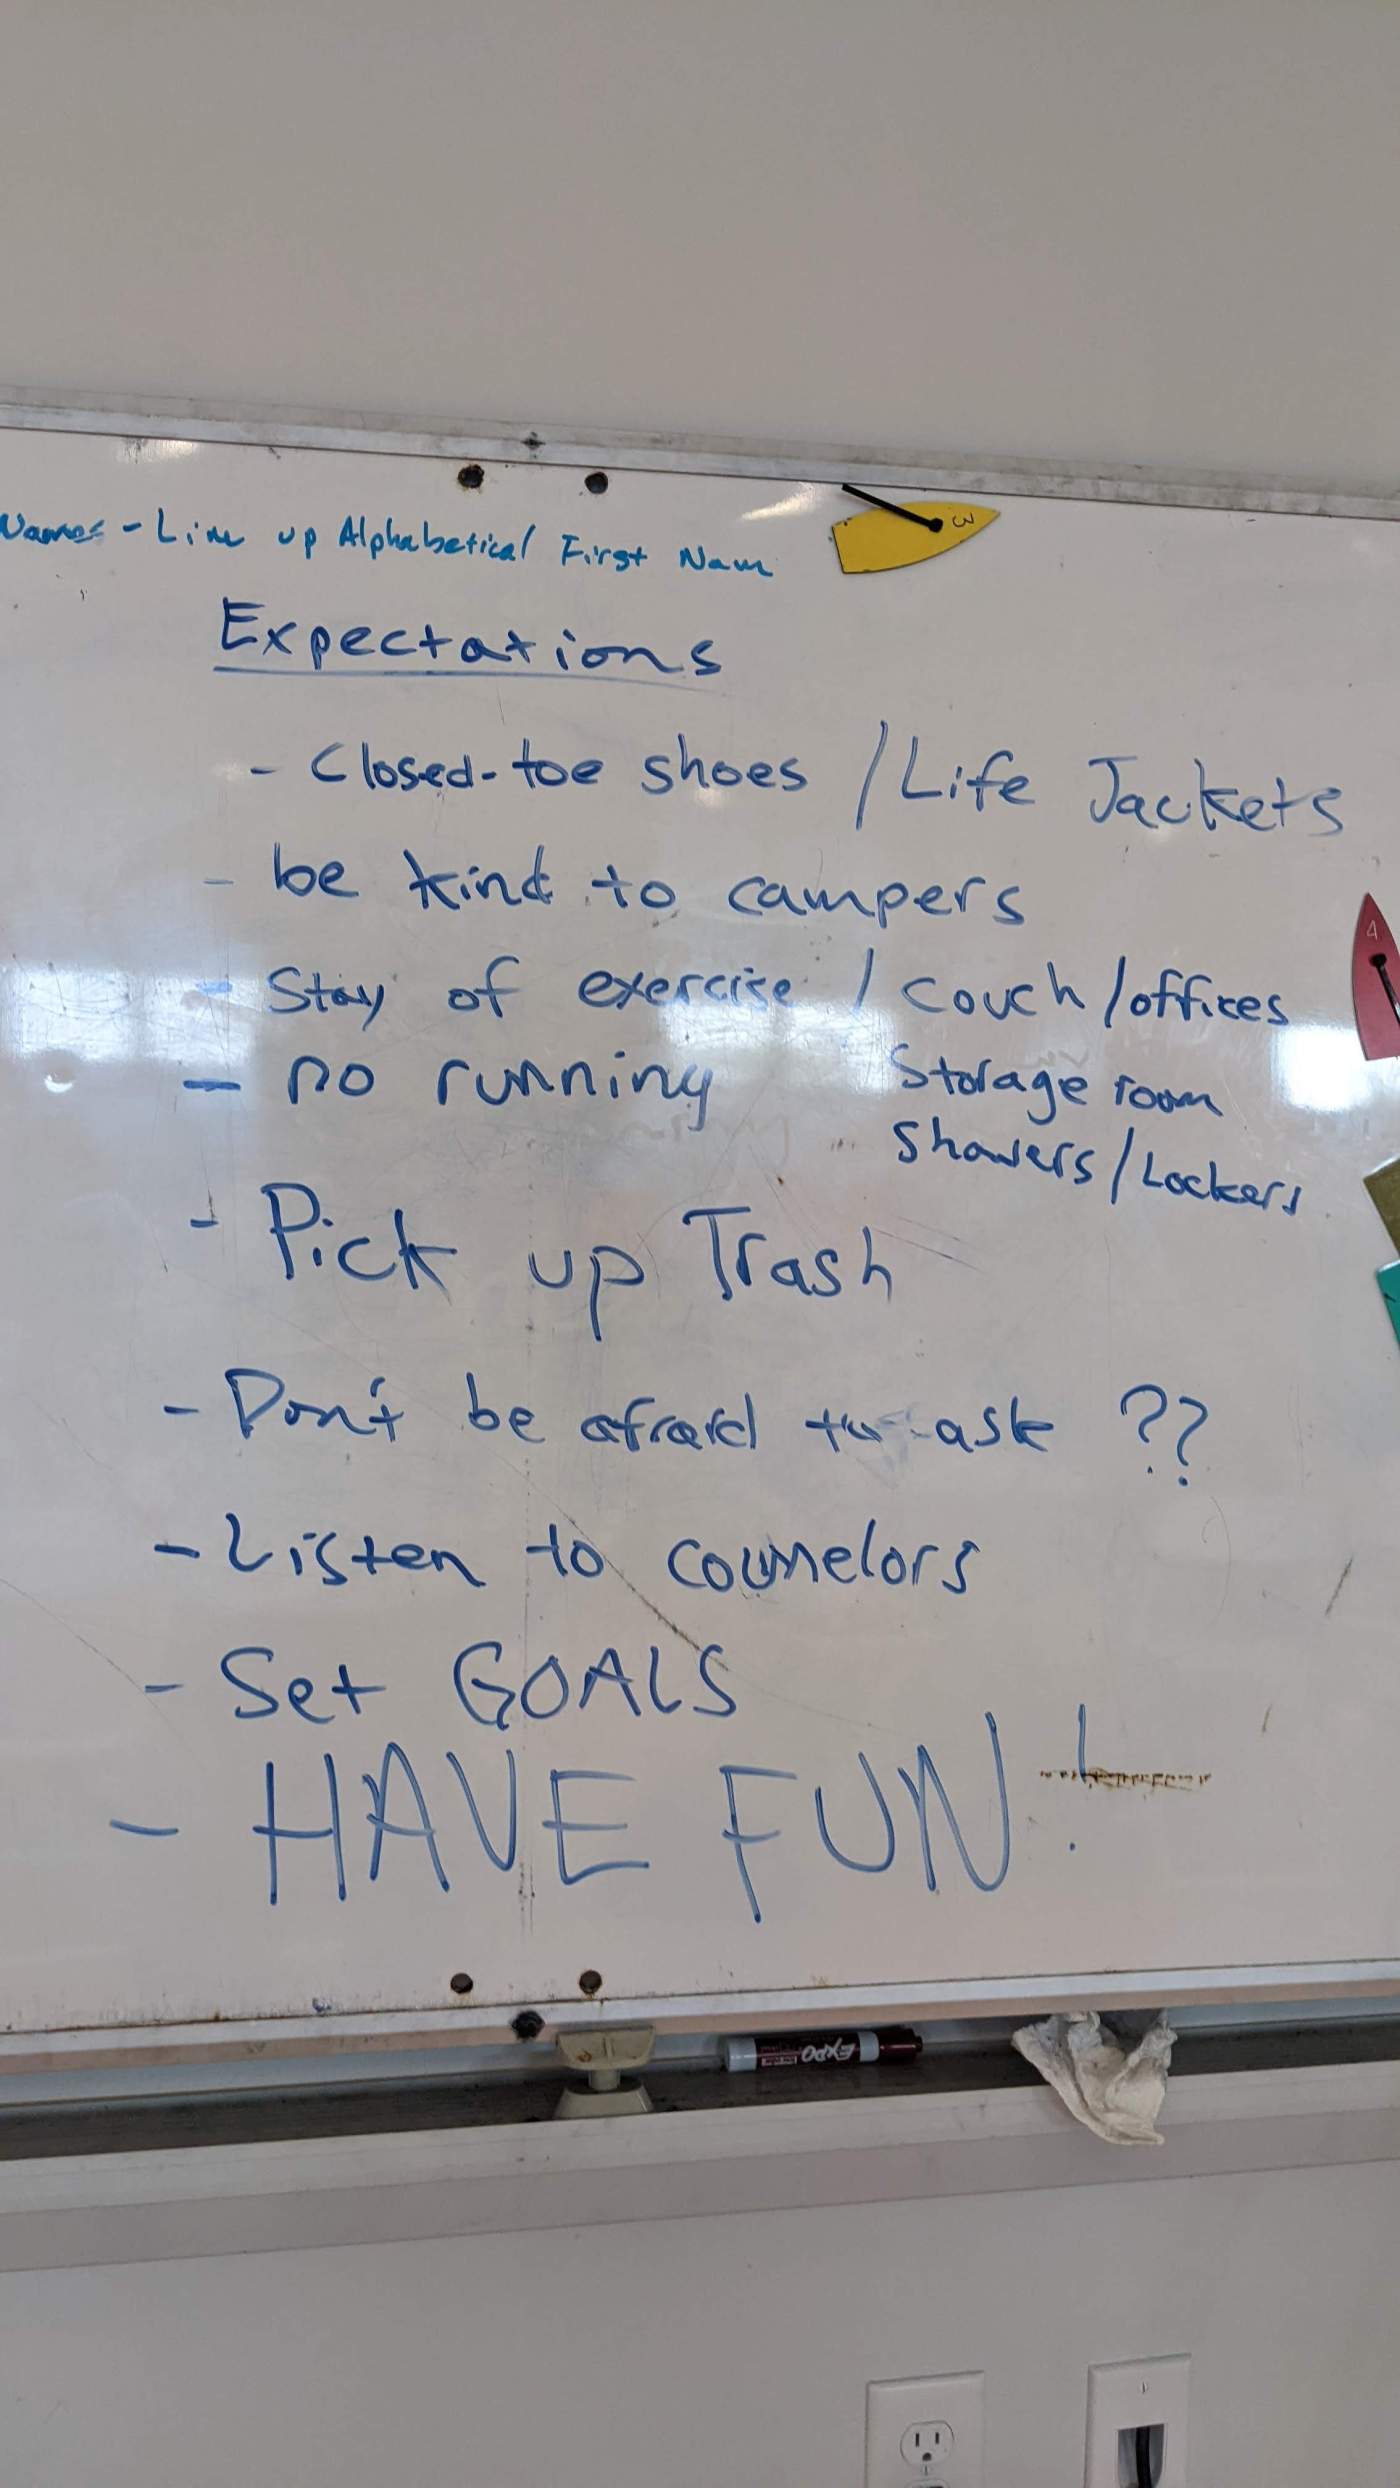 Names - Line up Alphabetical First Nam
3
Expectations
- Closed-toe shoes / Life Jackets
- be kind to campers
4
- Stay of exercise / couch / offices
Storage room
Showers / Lockers
- no running
- Pick up Trash
- Don't be afraid to ask ??
- Listen to counselors
- Set GOALS
- HAVE FUN!
EXPO